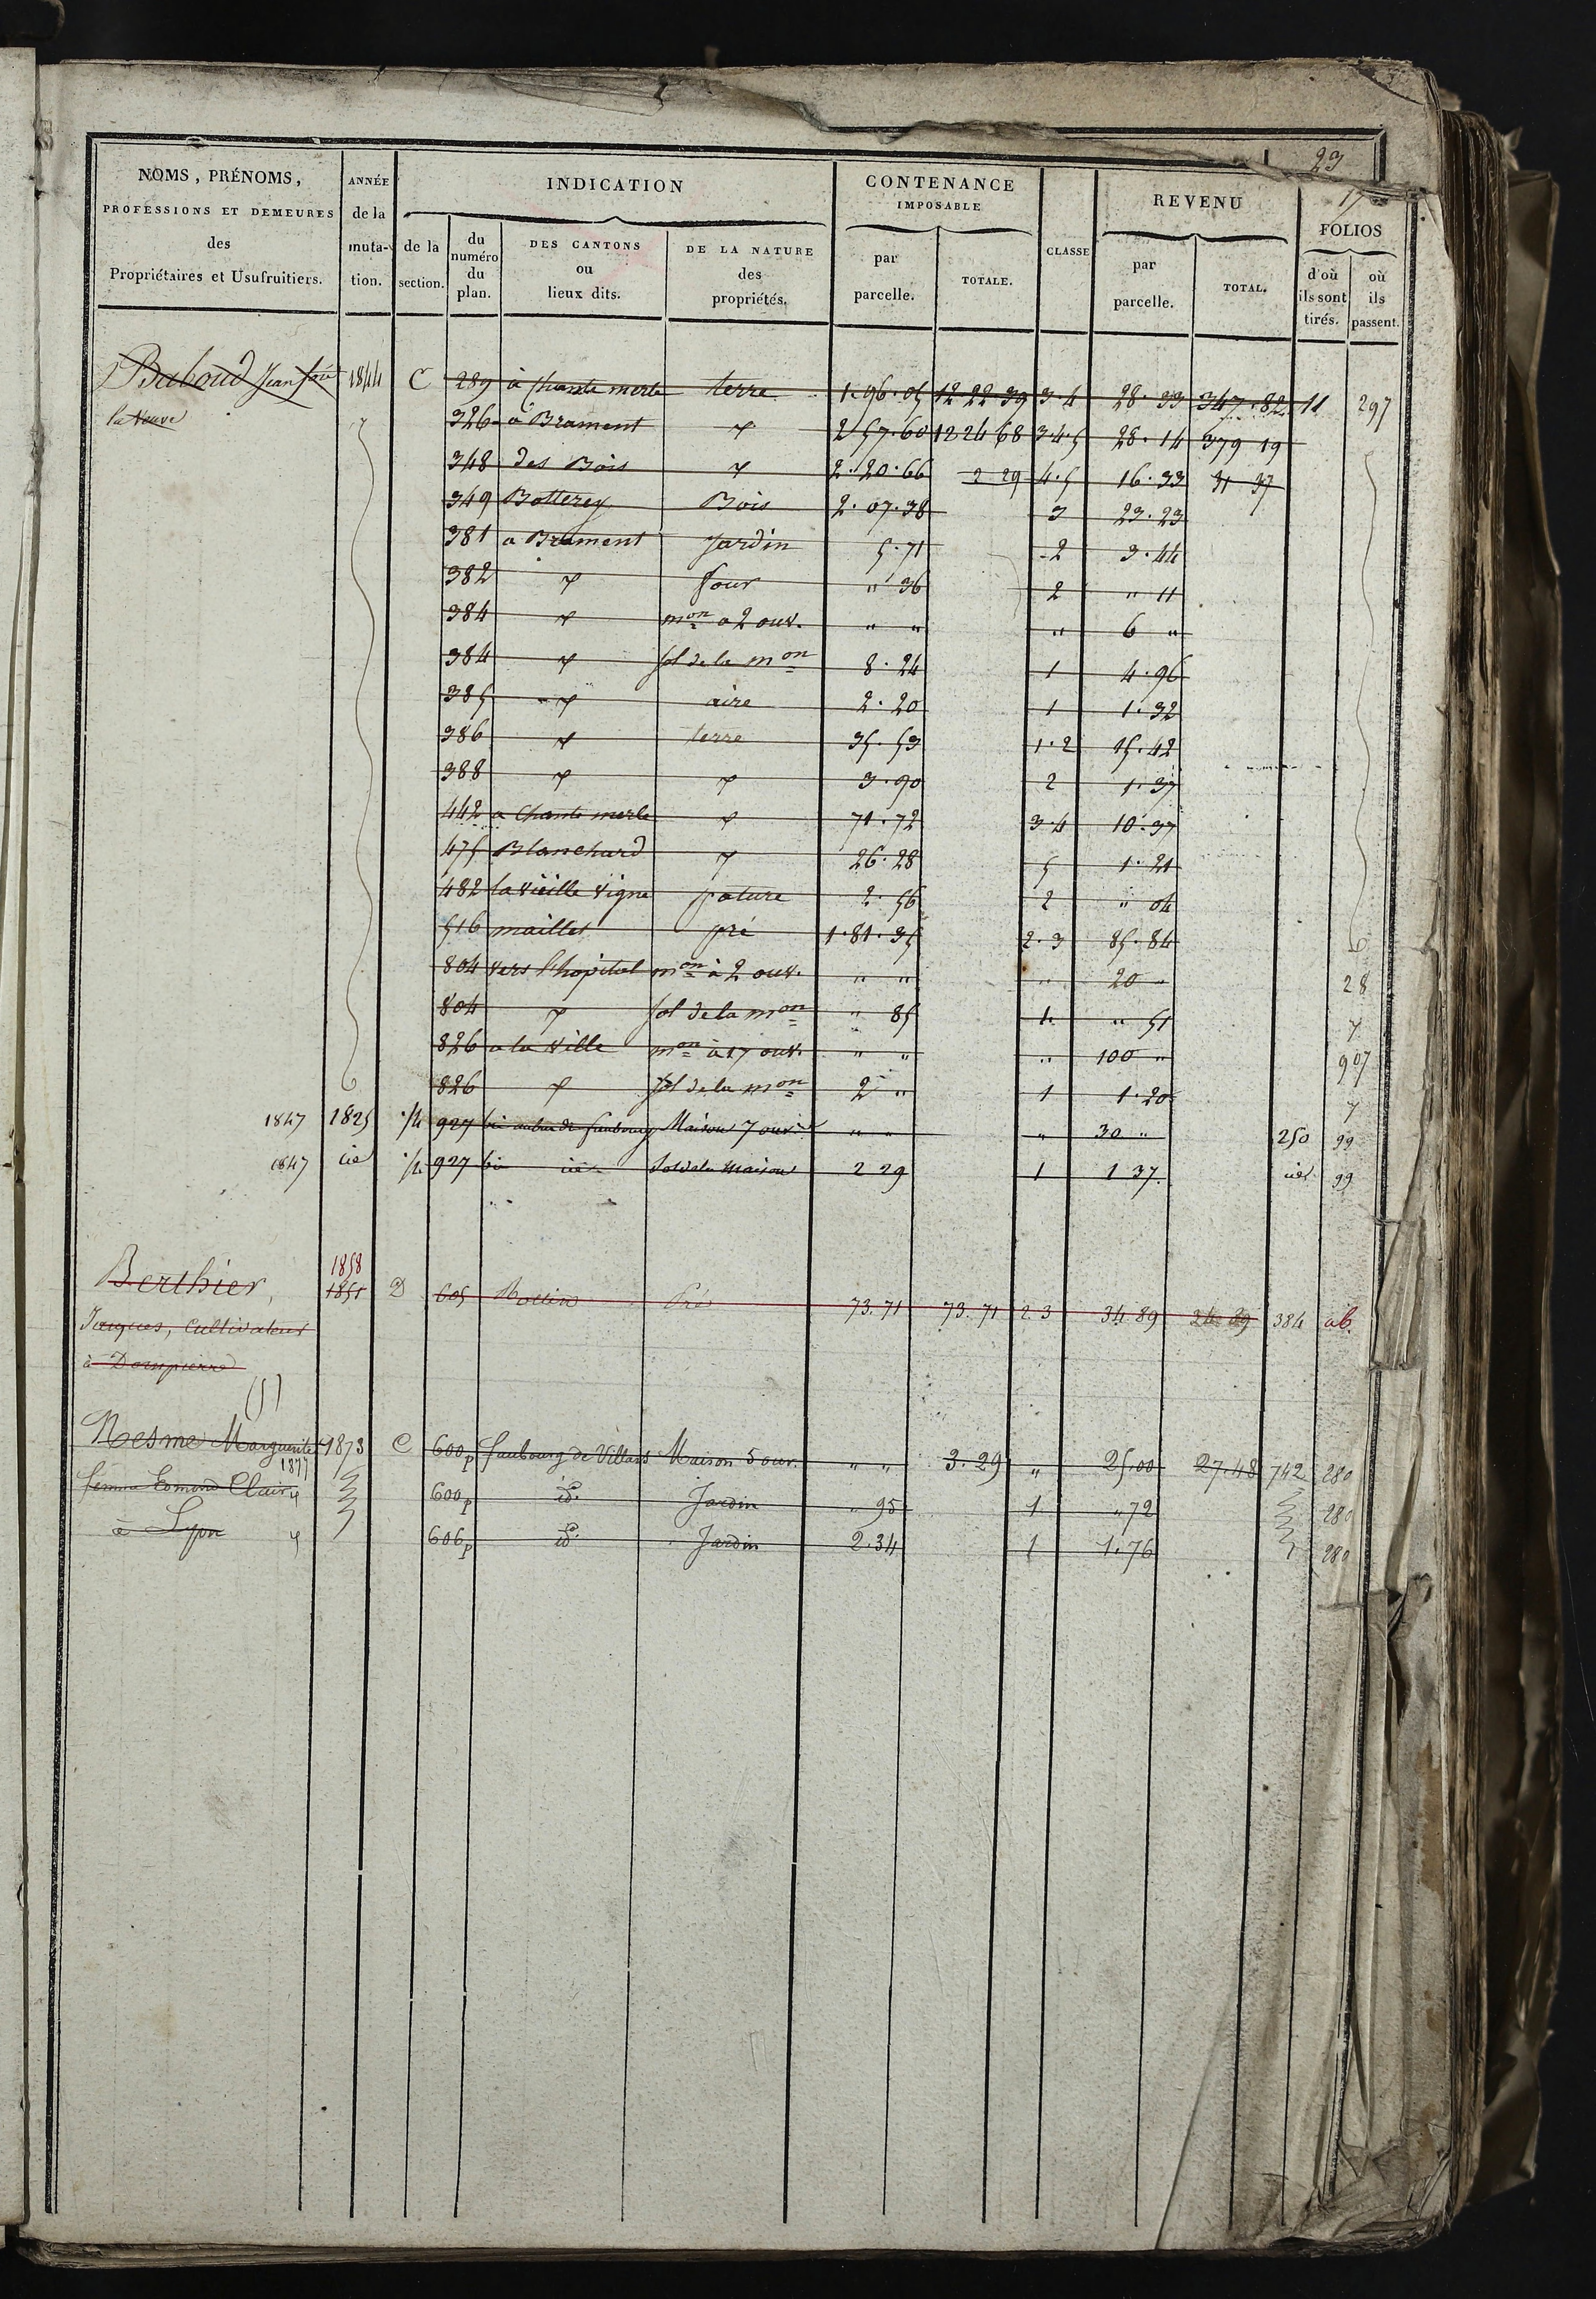 23
17
NOMS, PRÉNOMS, PROFESSIONS ET DEMEURES des Propriétaires et Usufruitiers.
ANNÉE de la muta-tion.
INDICATION
de la section.
du numéro du plan.
DES CANTONS ou lieux dits.
DE LA NATURE des propriétés.
CONTENANCE IMPOSABLE
par parcelle.
TOTALE.
CLASSE
REVENU
par parcelle.
TOTAL.
FOLIOS
d'où ils sont tirés.
où ils passent.
Baboud Jean 1844 C 289 à Chante merle terre 1.96.05 12 22 39 3.4 28.33 347.82 11 297
la Veuve 326 à Brament 〃 2 57.60 12 24 68 3.4.5 28.14 379 19
348 des Bois 〃 2.20.66 2 29 4.5 16.33 31 37
349 Botterey Bois 2.07.38 3 23.23
381 a Brament Jardin 5.71 2 3.44
382 〃 four " 36 2 " 11
384 〃 mon a 2 ouv. " " " 6 "
384 〃 sol de la mon 8.24 1 4.96
385 〃 aire 2.20 1 1.32
386 〃 terre 35.53 1.2 15.42
388 〃 〃 3.90 2 1.37
442 a Chante merle 〃 71.72 3.4 10.37
475 Blanchard 〃 26.28 5 1.21
482 la vieille vigne pature 2.56 2 " 04
516 maillet pré 1.81.35 2.3 85.84
804 vers l'hopital mon à 2 ouv. " " " 20 " 28
804 〃 sol de la mon " 85 1 " 51 〃
826 a la ville mon à 17 ouv. " " " 100 " 907
826 〃 sol de la mon 2 " 1 1.20 〃
1847 1825 927 faubourg Maison 7 ouv. " " " 30 " 250 99
1847 id 927 id Sol de la maison 2 29 1 1 37 id 99
1858
Berthier, 1851 D 605 Pré 73.71 73.71 2.3 34.89 34 89 384 ab.
Jacques, Cultivateur
à Dompierre
(5)
Nesme Marguerite 1873 C 600p faubourg de Villars Maison 5 ouv. " " 3.29 " 25.00 27.48 742 280
1877
femme Edmond Clair 600p id. Jardin " 95 1 " 72 280
à Lyon 606p id. Jardin 2.34 1 1.76 280